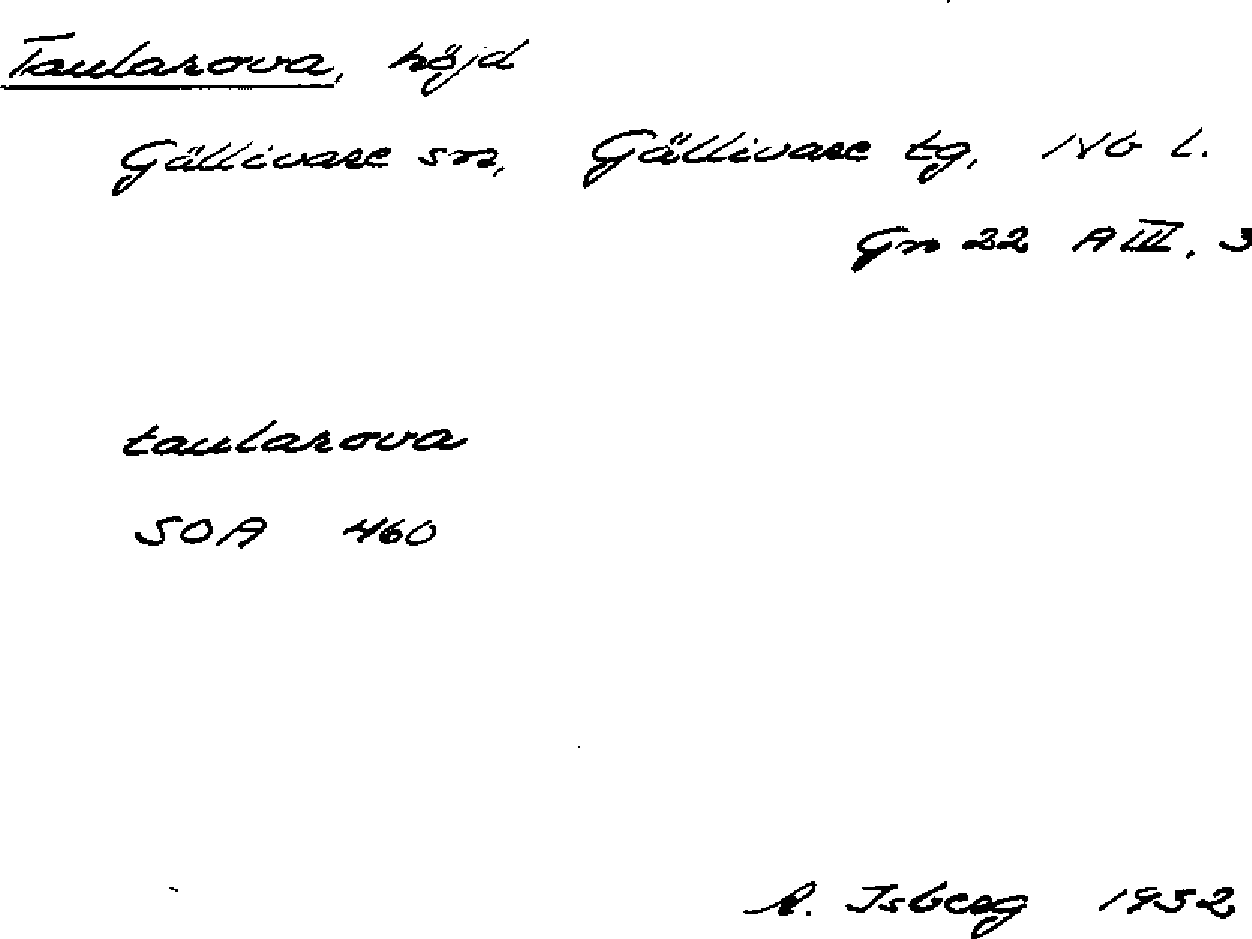 Taularova, höjd
Gällivare sn, Gällivare tg, Nb l.
Gn 22 A III, 3
taularova
SOA 460
A. Isberg 1952